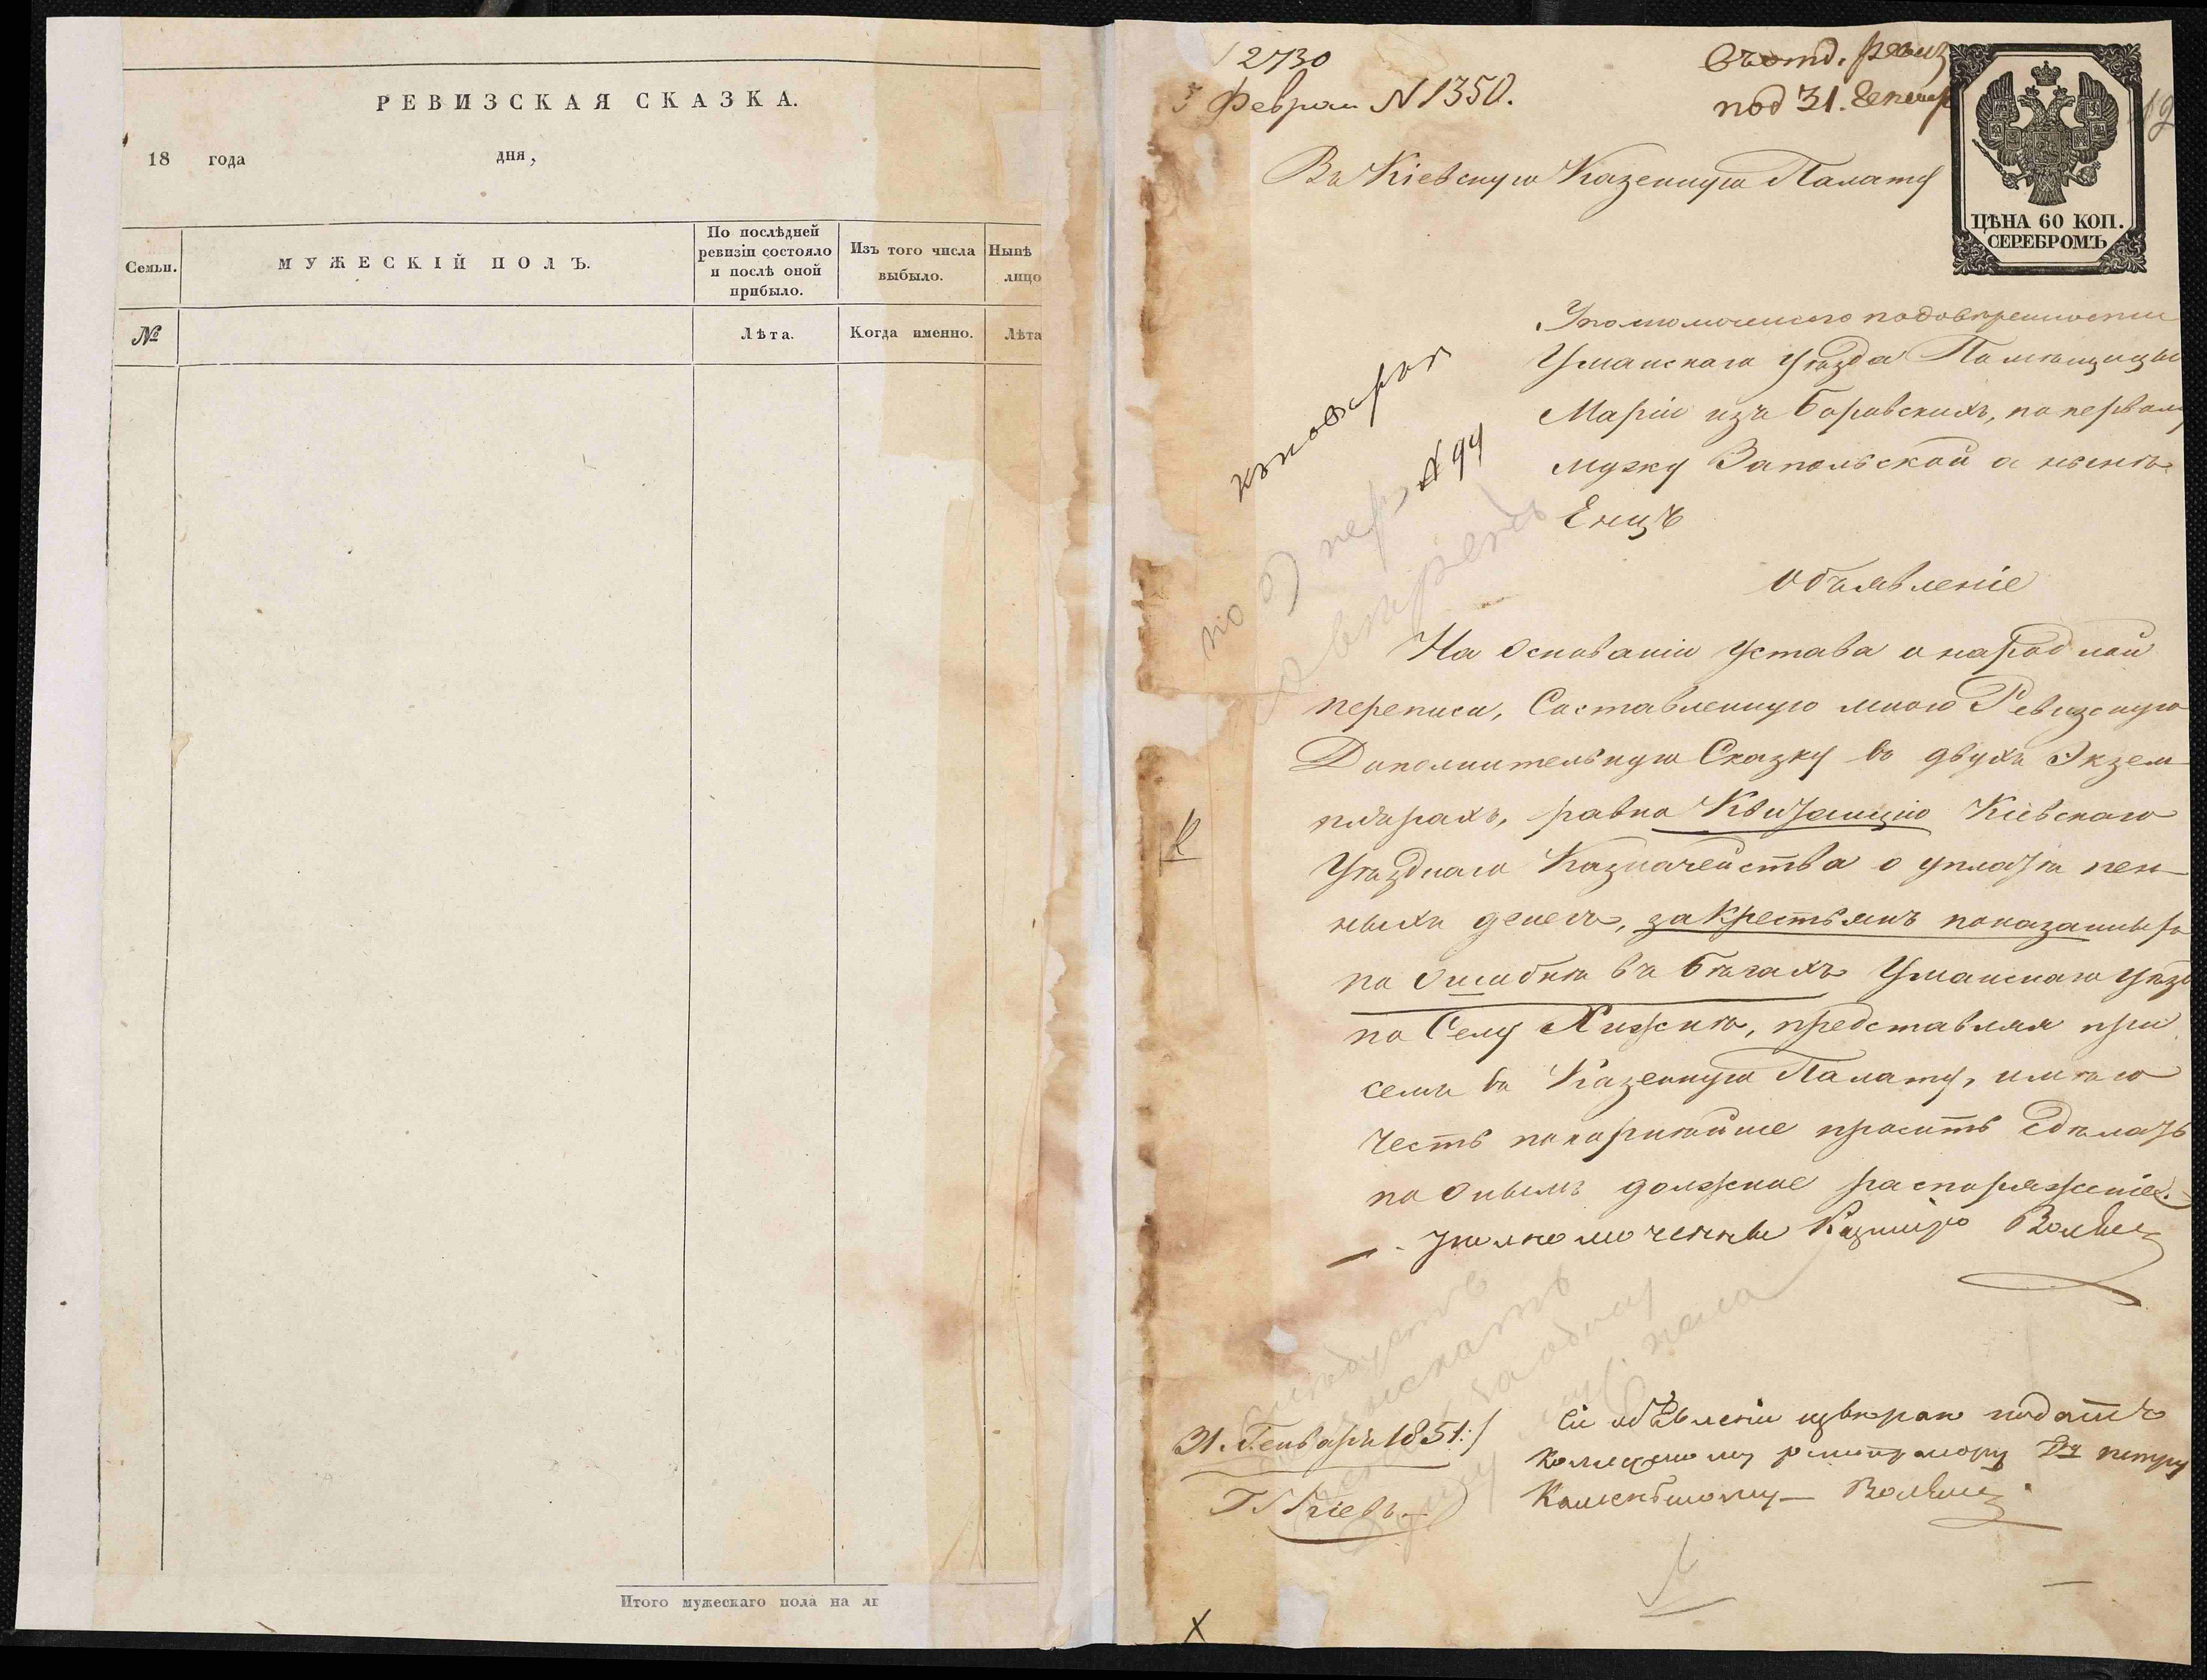 РЕВИЗСКАЯ СКАЗКА.
18 года дня,
Семьи.
МУЖЕСКІЙ ПОЛЪ.
По послѣдней
ревизіи состояло
и послѣ оной
прибыло.
Изъ того числа
выбыло.
Нынѣ
лицо
№
Лѣта.
Когда именно.
Лѣта
Итого мужескаго пола на ли
2730
3 Февраля N 1350.
под 31.
Въ Кіевскую Казенную Палату
ЦѢНА 60 КОП.
СЕРЕБРОМЪ
Уполномоченнаго по довѣренности
Уманскаго Уѣзда Помѣщицы
Маріи изъ Боровскихъ, по первому
мужу Запольской а нынѣ
Енцъ
N 94
Объявленіе
На Основаніи Устава о народной
переписи, Составленную мною Ревизскую
Дополнительную Сказку въ двухъ Экзем
плярахъ, равно Квитанцію Кіевскаго
Уѣзднаго Казначейства о уплатѣ пен
ныхъ денегъ, за Крестьянъ показанныхъ
по Ошибкѣ въ бѣгахъ Уманскаго Уѣзд
по Селу Хижнѣ, представляя при
семъ въ Казенную Палату, имѣю
честь покорнѣйше просить сдѣлать
по Онымъ должное распоряженіе.
Уполномоченный Казиміръ
31. Генваря 1851.
Г. Кіевъ
Сіе объявленіе ввѣряю подать
Коллежскому регистратору Петру